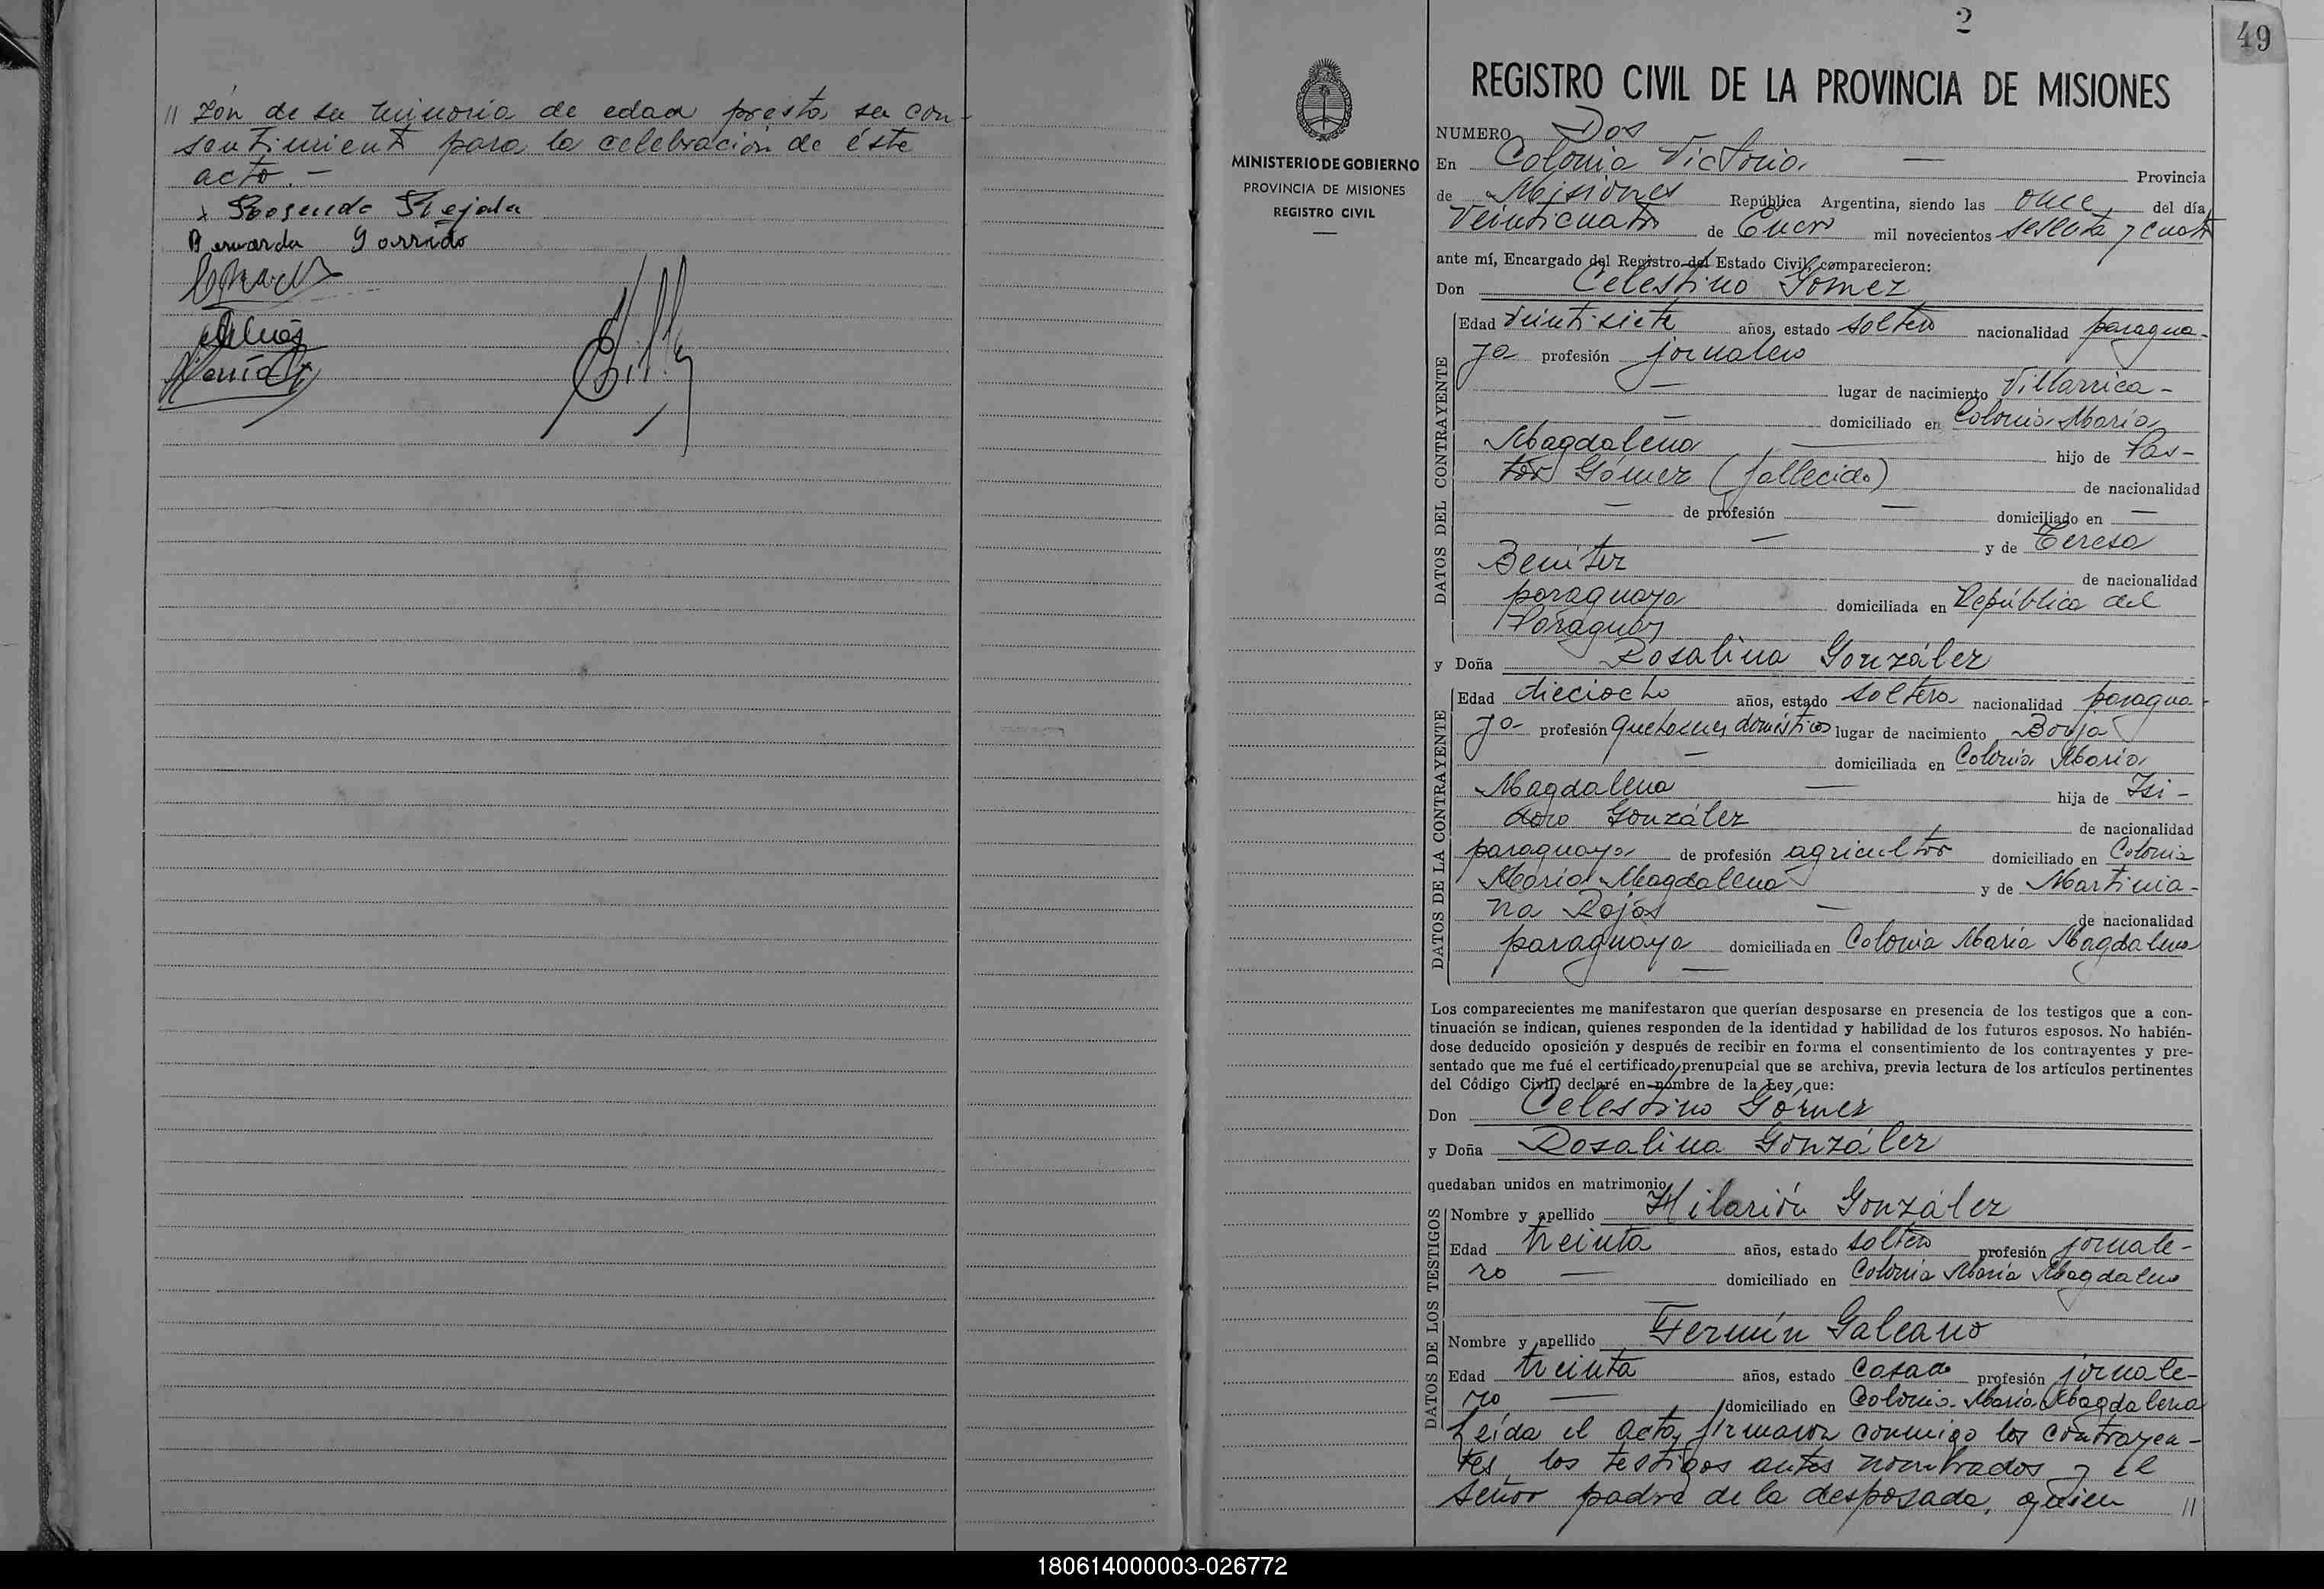 // zón de su minoría de edad presta su con-
sentimiento para la celebración de éste
acto.-
Rosendo Trejala
Bernarda Garrido
2
49
REGISTRO CIVIL DE LA PROVINCIA DE MISIONES
MINISTERIO DE GOBIERNO
PROVINCIA DE MISIONES
REGISTRO CIVIL
NUMERO Dos
En Colonia Victoria — Provincia
de Misiones República Argentina, siendo las once del día
veinticuatro de Enero mil novecientos sesenta y cuatro
ante mí, Encargado del Registro del Estado Civil, comparecieron:
Don Celestino Gómez
DATOS DEL CONTRAYENTE
Edad veintisiete años, estado soltero nacionalidad paragua-
ya profesión jornalero
— lugar de nacimiento Villarrica-
— domiciliado en Colonia María
Magdalena — hijo de Pas-
tor Gómez (fallecido) de nacionalidad
— de profesión — domiciliado en —
— y de Teresa
Benítez de nacionalidad
paraguaya domiciliada en República del
Paraguay
y Doña Rosalina González
DATOS DE LA CONTRAYENTE
Edad dieciocho años, estado soltera nacionalidad paragua-
ya profesión quehaceres domésticos lugar de nacimiento Borja
— domiciliada en Colonia María
Magdalena — hija de Isi-
doro González de nacionalidad
paraguaya de profesión agricultor domiciliado en Colonia
María Magdalena y de Martinia-
na Rojas — de nacionalidad
paraguaya domiciliada en Colonia María Magdalena
—
Los comparecientes me manifestaron que querían desposarse en presencia de los testigos que a con-
tinuación se indican, quienes responden de la identidad y habilidad de los futuros esposos. No habién-
dose deducido oposición y después de recibir en forma el consentimiento de los contrayentes y pre-
sentado que me fué el certificado prenupcial que se archiva, previa lectura de los artículos pertinentes
del Código Civil, declaré en nombre de la Ley que:
Don Celestino Gómez
y Doña Rosalina González
quedaban unidos en matrimonio
DATOS DE LOS TESTIGOS
Nombre y apellido Hilarión González
Edad treinta años, estado soltero profesión jornale-
ro — domiciliado en Colonia María Magdalena
Nombre y apellido Fermín Galeano
Edad treinta años, estado casado profesión jornale-
ro — domiciliado en Colonia María Magdalena
Leída el acta, firmaron conmigo los contrayen-
tes, los testigos antes nombrados y el
señor padre de la desposada, quien //
180614000003-026772